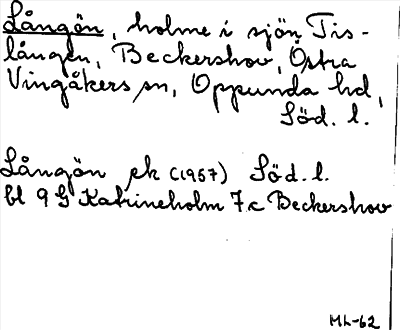 Långön, holme i sjön Tis-
lången, Beckershov, Östra
Vingåkers sn, Oppunda hd,
Söd. l.
Långön ek (1957) Söd. l.
bl 9 G Katrineholm 7c Beckershov
ML-62